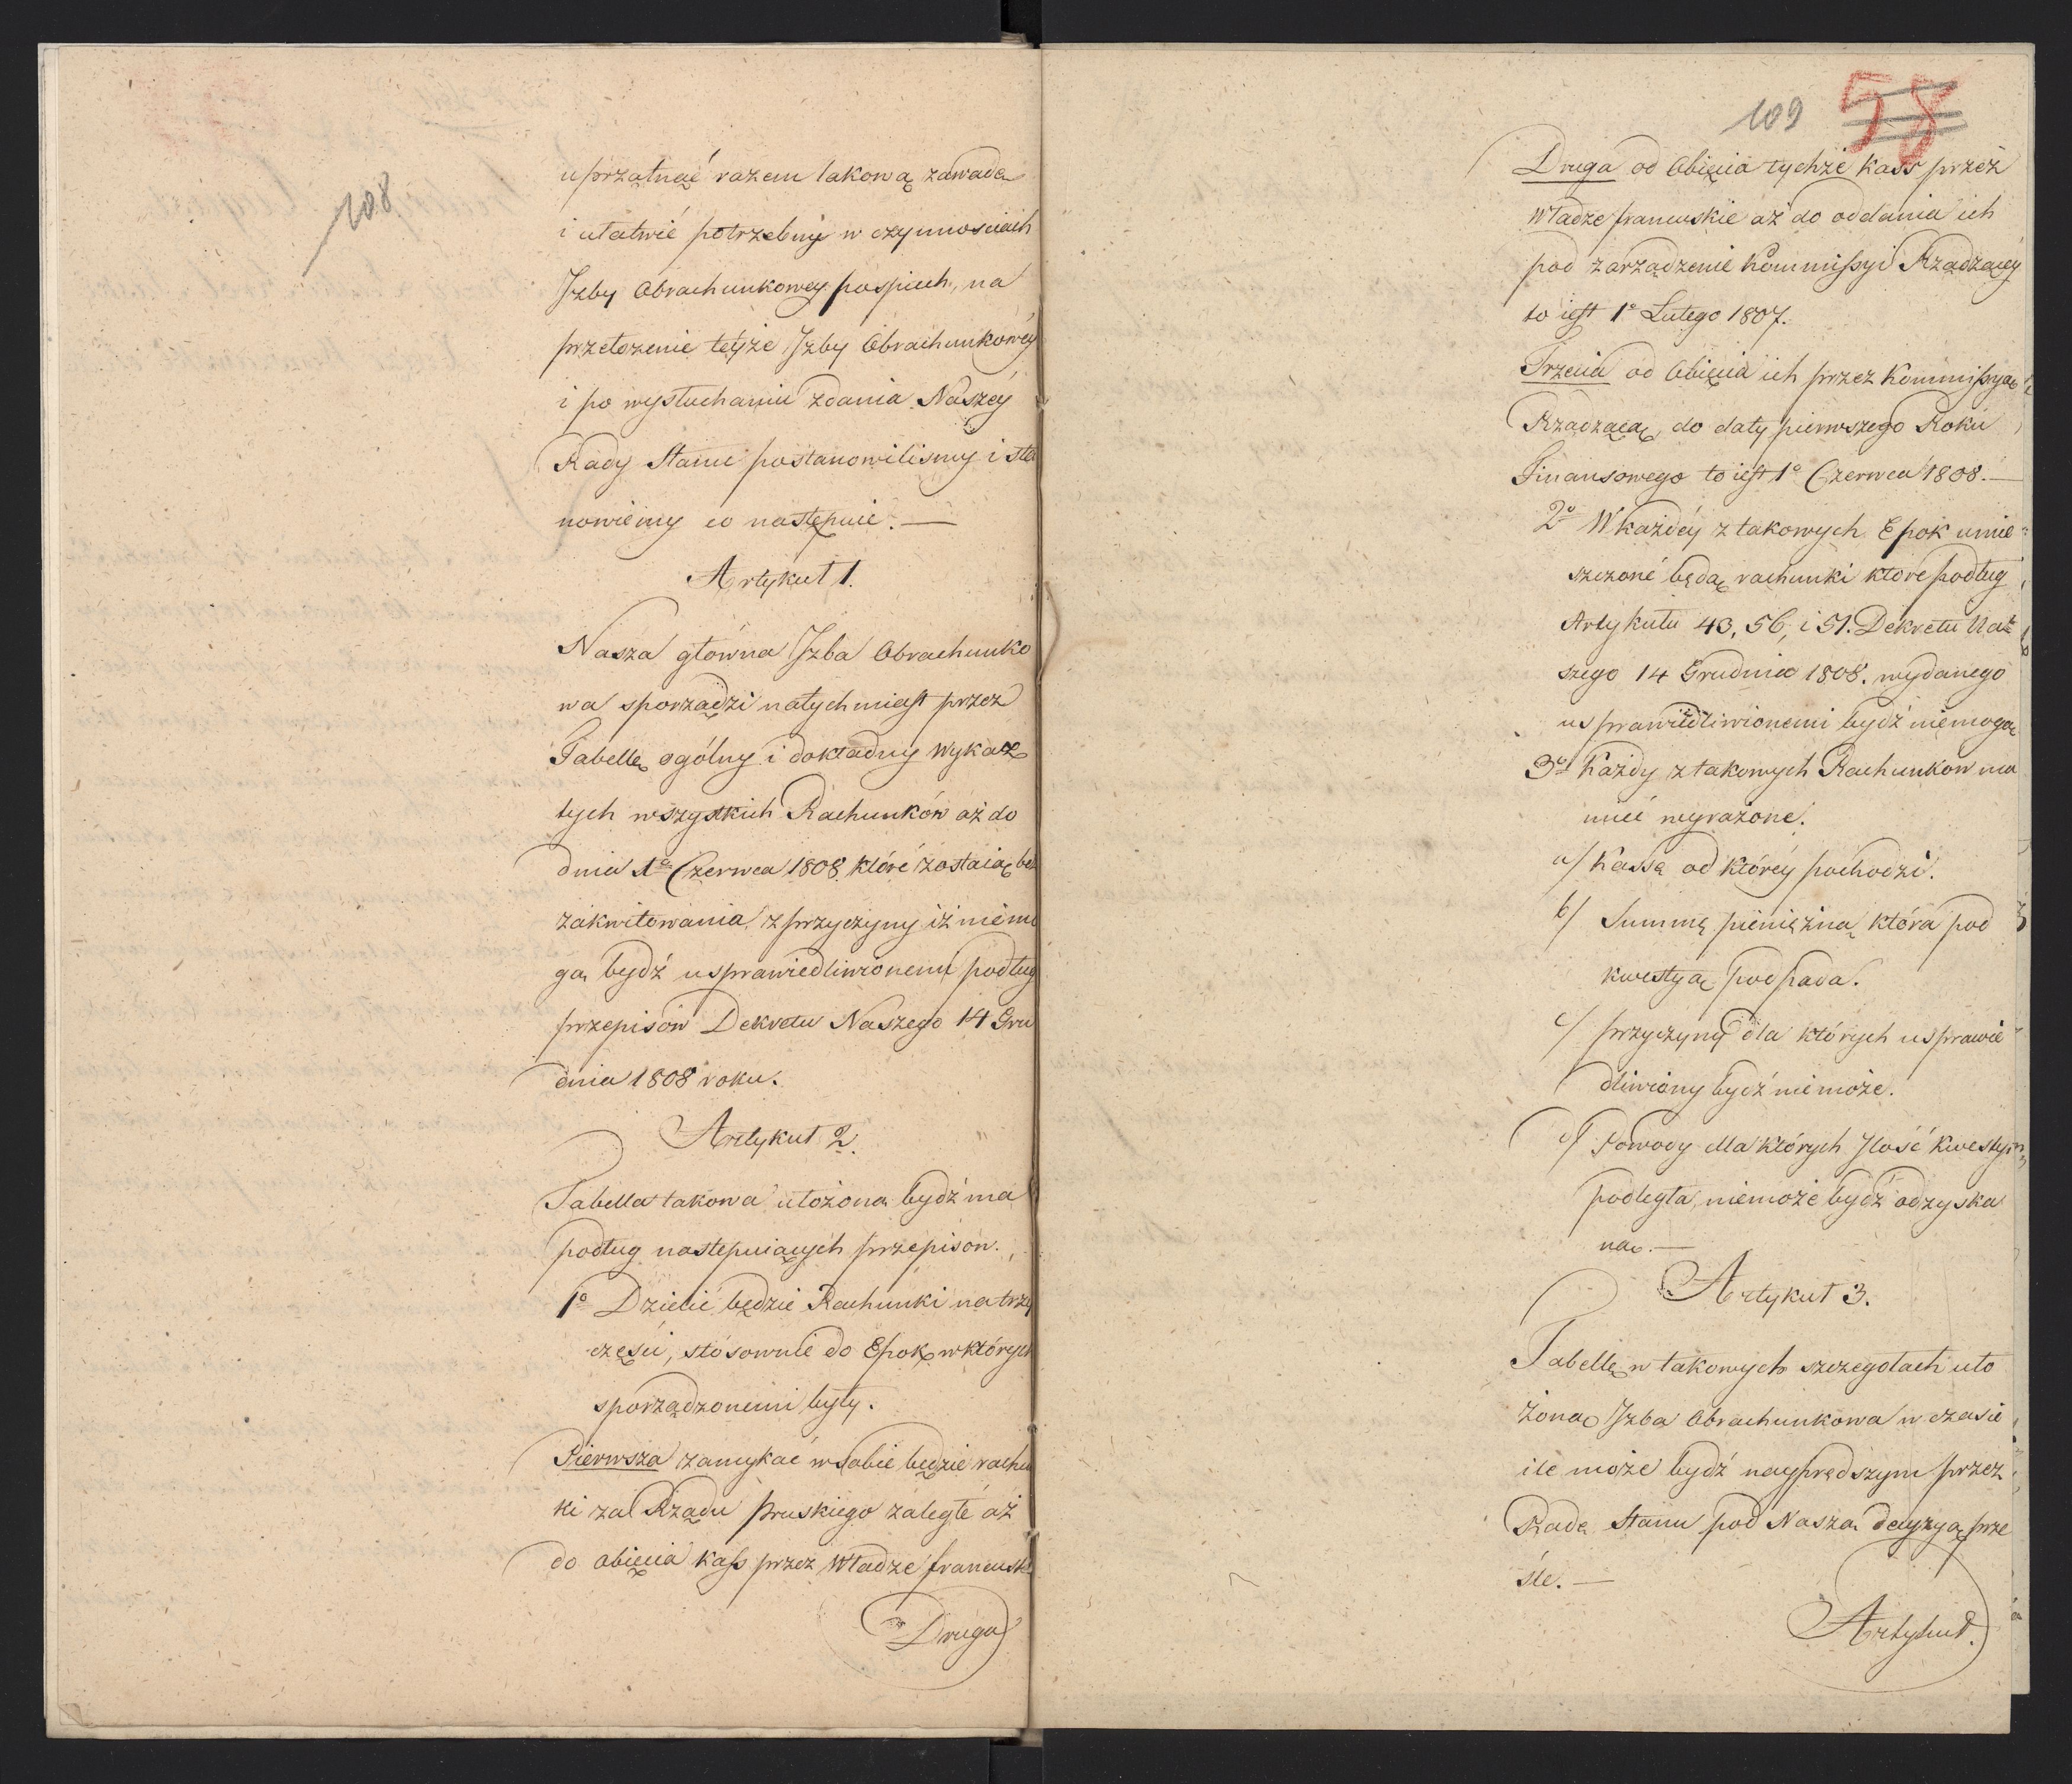 108
uprzątnąć razem takową zawadę
i ułatwić potrzebny w czynnościach
Izby Obrachunkowey pospiech, na
przełożenie teyże Izby Obrachunkowey
i po wysłuchaniu zdania Naszéy
Rady Stanu postanowiliśmy i sta
nowiemy co następuie. —
Artykuł 1.
Nasza główna Izba Obrachunko
wa sporządzi natychmiast przez
Tabellę ogólny i dokładny wykaz
tych wszystkich Rachunków aż do
dnia 1o Czerwca 1808 które zostaią bez
zakwitowania z przyczyny iż niemo
gą bydź usprawiedliwionemi podług
przepisów Dekretu Naszego 14 Gru
dnia 1808 roku.
Artykuł 2.
Tabella takowa ułożona bydź ma
podług następuiących przepisów.
1o Dzielić będzie Rachunki na trzy
części, stósownie do Epok w których
sporządzonemi były.
Pierwsza zamykać w sobie będzie rachu
ki za Rządu pruskiego zaległe aż
do obięcia kass przez Władze francusk
Druga
109 58
Druga od Obięcia tychże kass przez
Władze francuskie aż do oddania ich
pod zarządzenie Kommissyi Rządzącéy
to iest 1o Lutego 1807.
Trzecia od Obięcia ich przez Kommissyą
Rządzącą, do daty pierwszego Roku
Finansowego to iest 1o Czerwca 1808. —
2o W każdéy z takowych Epok umie=
szczone będą rachunki które podług
Artykułu 43, 56, i 51. Dekretu Na=
szego 14 Grudnia 1808. wydanego
usprawiedliwionemi bydź niemogą
3o Każdy z takowych Rachunków ma
mieć wyrażone.
a/ Kassę od któréy pochodzi.
b/ Summę pieniężną która pod
kwestyą podpada.
c/ przyczyny dla których usprawie
dliwiony bydź nie może.
d/ Powody dla których Ilość kwestyi
podległa, niemoże bydź odzyska
ną. —
Artykuł 3.
Tabellę w takowych szczegółach uło
żoną Izba Obrachunkowa w czasie
ile może bydź nayprędszym przez
Radę Stanu pod Naszą decyzyą prze
śle. —
Artykuł.